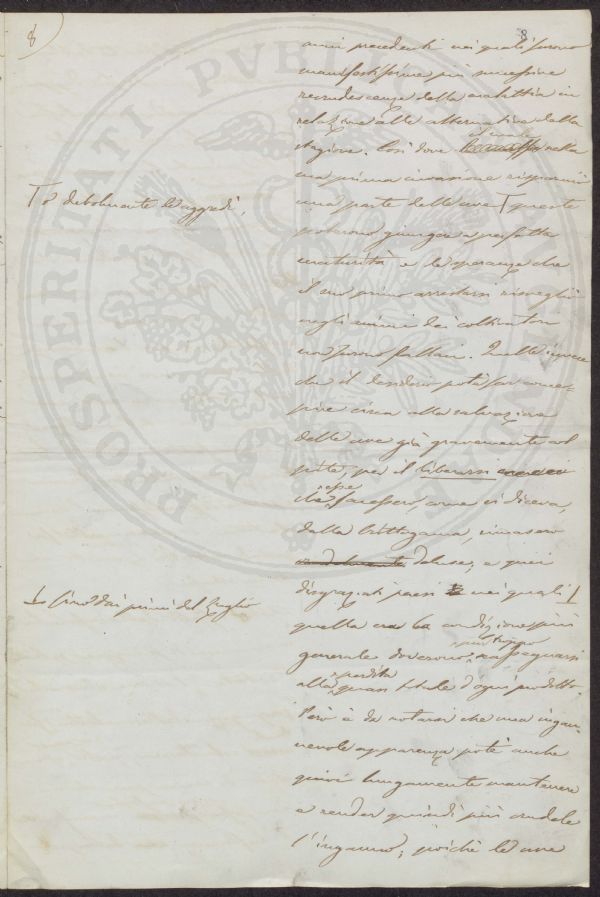 8
8
anni precedenti nei quali furono
manifestissime più successive
recrudescenze della malattia in
relazione alle alternative della
il male
stagione. Così dove nella
sua prima invasione risparmiò
T o debolmente le aggredì,
una parte delle uve T queste
poterono giungere a perfetta
maturità e le speranze che
il suo primo arrestarsi risvegliò
negli animi dei coltivatori
non furono fallaci. Quelle invece
che il desiderio potè far conce-
pire circa alla salvazione
delle uve già gravemente col
pite, per il liberarsi
che esse facessero, come si diceva,
dalla Crittogama, rimasero
deluse, e quei
disgraziati paesi nei quali
⊥ fino dai primi del Luglio
quella era la condizione più
generale doverono pur troppo rassegnarsi
alla perdita quasi totale d'ogni prodotto.
Però è da notarsi che una ingan-
nevole apparenza potè anche
quivi lungamente mantenere
e render quindi più crudele
l'inganno; poichè le uve